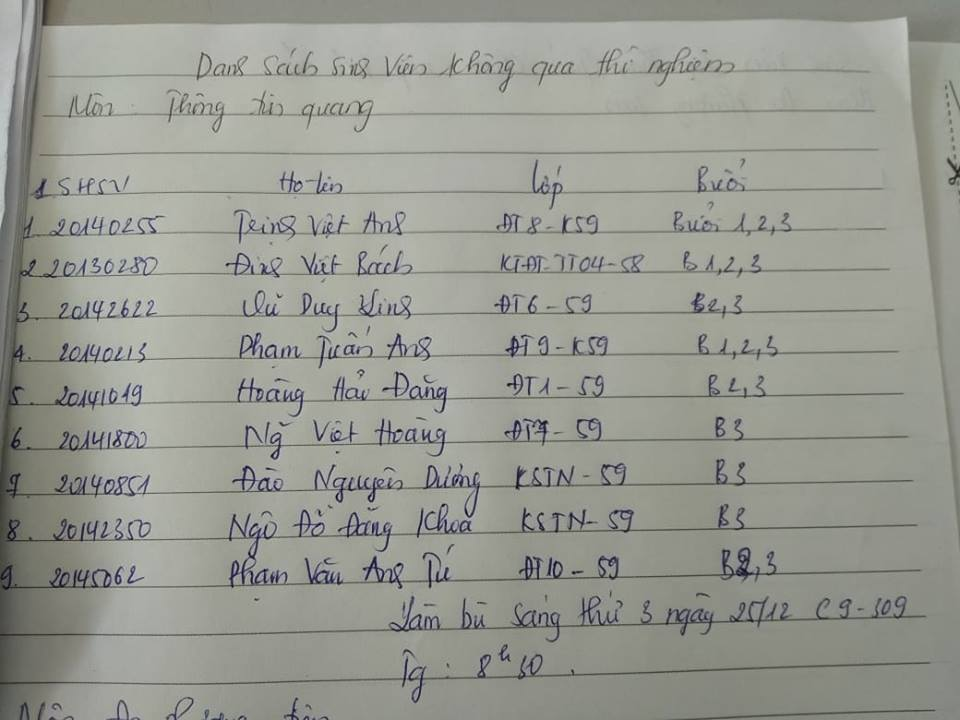 Danh sách sinh viên không qua thí nghiệm
Môn: Thông tin quang
SHSV Họ tên Lớp Buổi
1. 20140255 Trịnh Việt Anh ĐT8-K59 Buổi 1,2,3
2. 20130280 Đinh Việt Bách KT-ĐT-TT04-58 B1,2,3
3. 20142622 Vũ Duy Linh ĐT6-59 B2,3
4. 20140213 Phạm Tuấn Anh ĐT9-K59 B1,2,3
5. 20141019 Hoàng Hải Đăng ĐT1-59 B2,3
6. 20141800 Ng Việt Hoàng ĐT7-59 B3
7. 20140851 Đào Nguyên Dương KSTN-59 B3
8. 20142350 Ngô Đỗ Đăng Khoa KSTN-59 B3
9. 20145062 Phạm Văn Anh Tú ĐT10-59 B2,3
Làm bù sáng thứ 3 ngày 25/12 C9-309
Tg: 8h30.